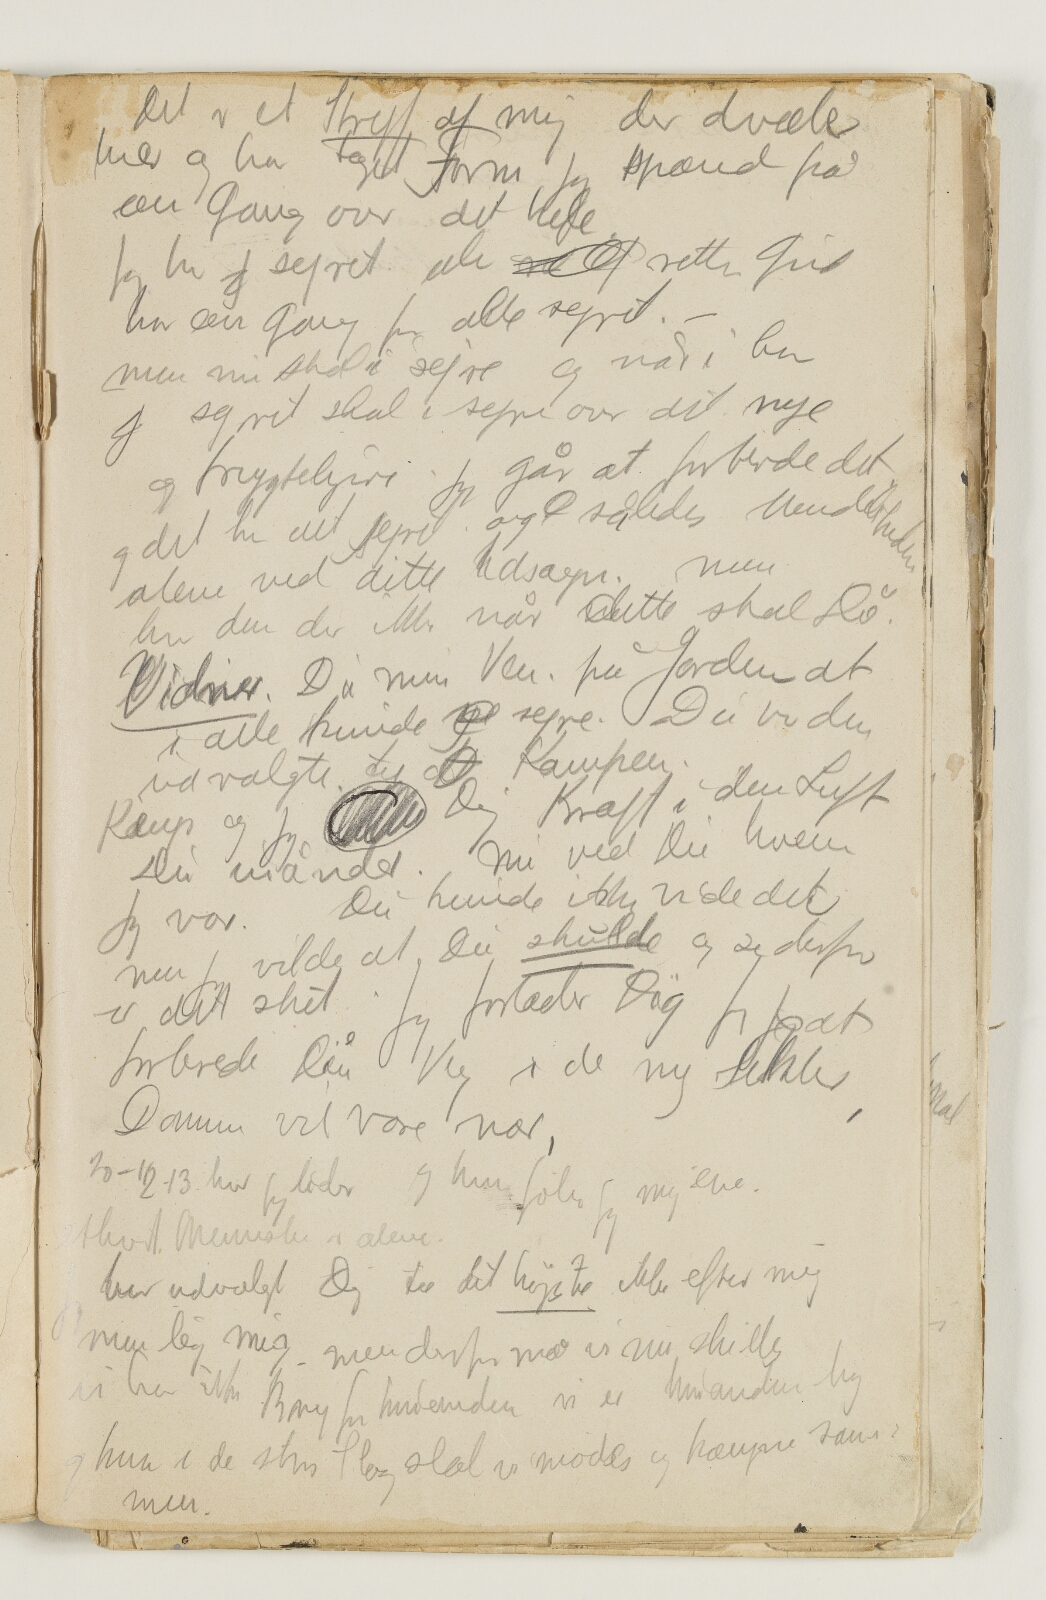 Det er et Strejf af mig der dvæler
her og har taget Form jeg spænd på
een Gang over det hele
jeg har sejret alle retten Grid
har een Gang for alle sejret. –
men nu skal i sejre og når i har
sejret skal i sejre over det nye
og frygteligere jeg går at forberede det
og det har alt sejret også således
alene ved dette Udsagn. men
hver den der ikke når dette skal dö.
Vidner. Du min Ven. på Jorden at
i alle kunde sejre. Du er den
udvalgte til Kampen.
Kamp og jeg Dig Kraft i den Luft
Du innånder. Nu ved Du hvem
jeg var. Du kunde ikke vide det
men jeg vilde at Du skulde og se derfor
er det sket. jeg forlader Dig for at
forberede Din Vej i de ny Sekler,
Dommen vil være nær,
20-12-13. her jeg lider og kun föler jeg mig ene.
thvert Menneske er alene.
har udvalgt Dig til det höjeste ikke efter mig
men lig mig – men derfor må vi nu skilles
vi har ikke Brug for hinanden vi er hinanden lig
og kun i de store Slag skal vi mödes og kæmpe sam-
men.